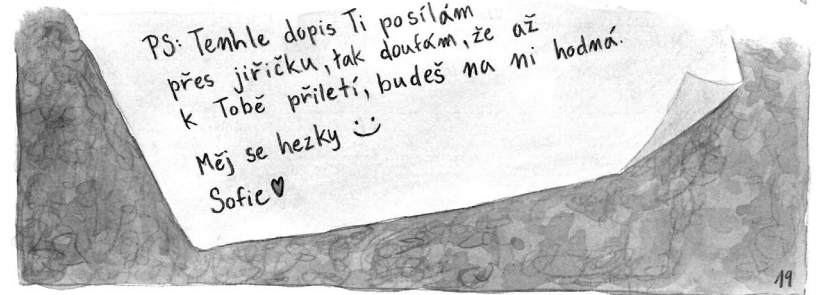 PS: Tenhle dopis Ti posílám
přes jiřičku, tak doufám, že až
k Tobě přiletí, budeš na ni hodná.
Měj se hezky :)
Sofie♥
19